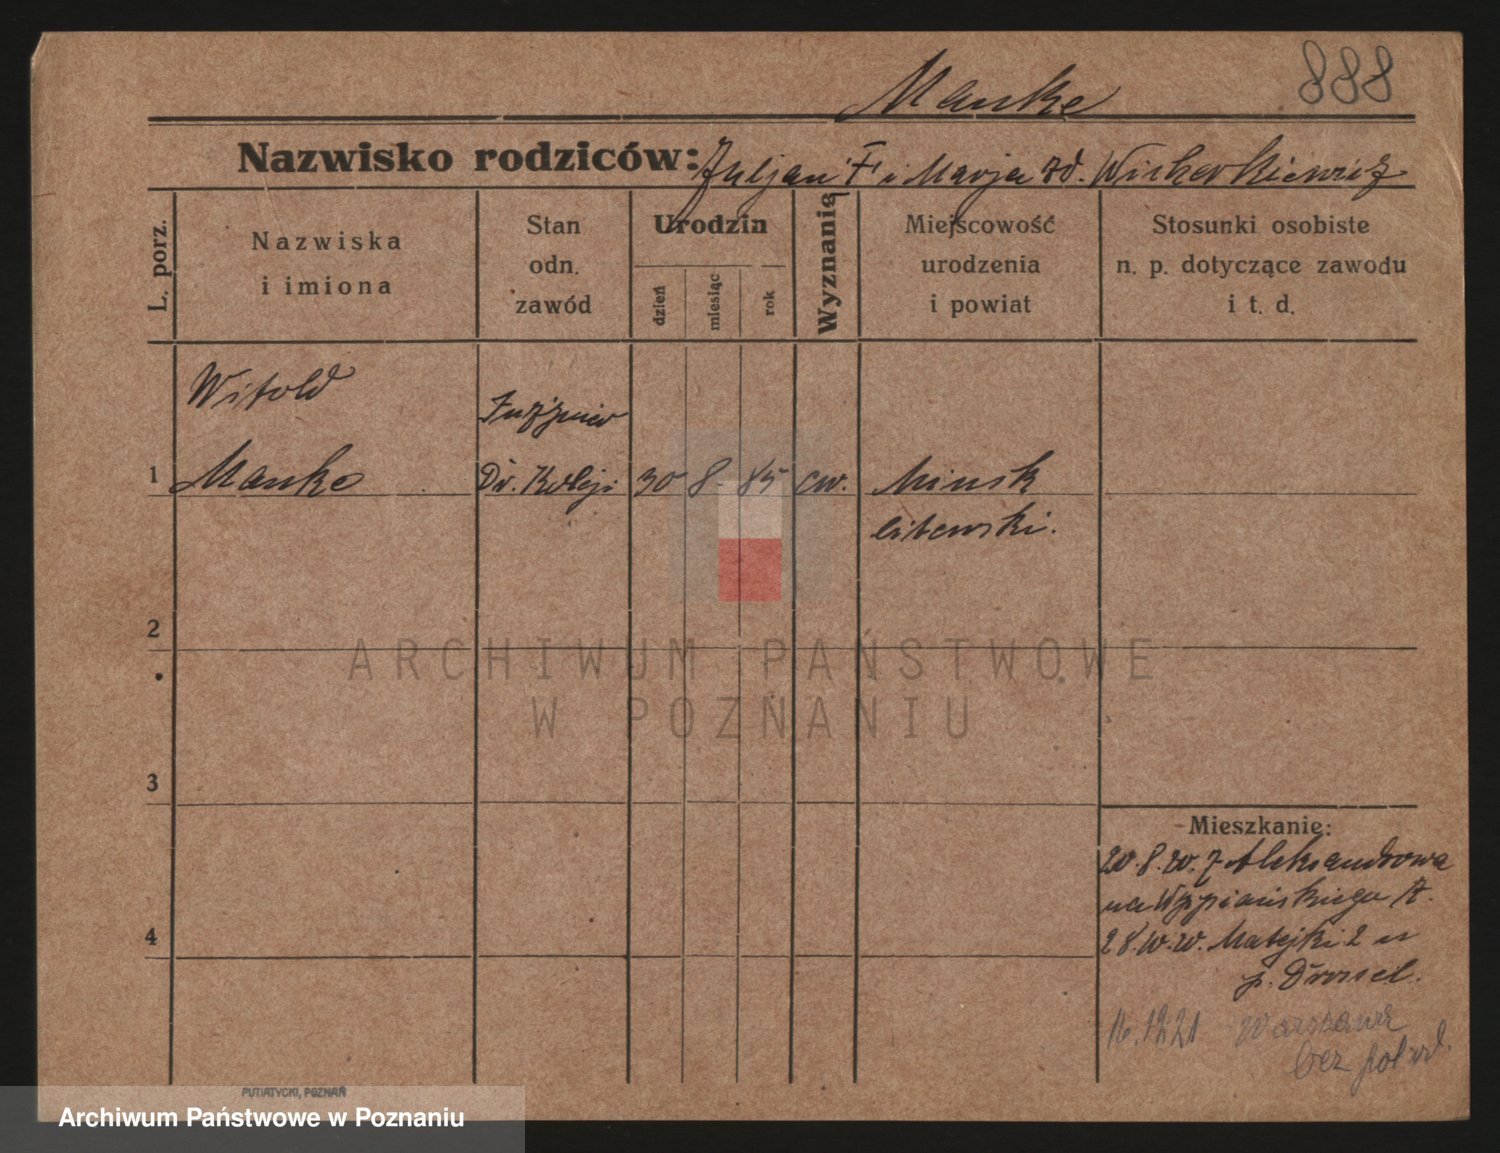 888
Manke
Nazwisko rodziców: Juljan F i Marja zd. Wicherkiewicz
L. porz.
Nazwiska
i imiona
Stan
odn.
zawód
Urodzin
dzień
miesiąc
rok
Wyznanie
Miejscowość
urodzenia
i powiat
Stosunki osobiste
n. p. dotyczące zawodu
i t. d.
Witold
1 Manke
Dr. Koleji
30 8. 85 ew.
Minsk
litewski.
2
3
4
Mieszkanie:
20.8.20. z Aleksandrowa
na Wyspiańskiego
Matejki 2 u
p. Drossel.
16.12 21 Warszawa
bez
PUTIATYCKI, POZNAŃ
ARCHIWUM PAŃSTWOWE
W POZNANIU
Archiwum Państwowe w Poznaniu